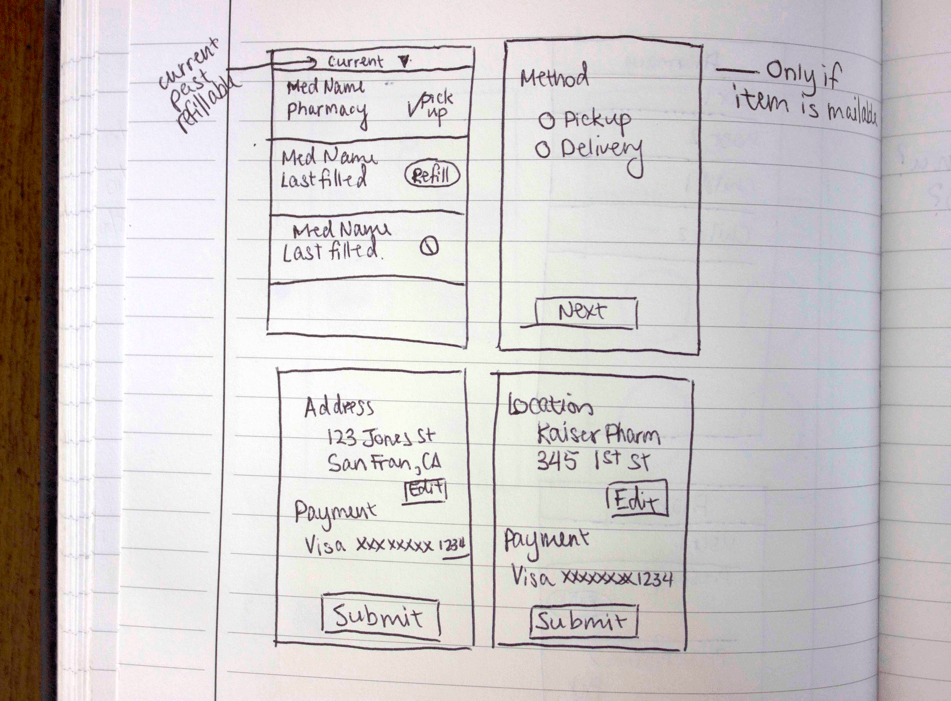 current
past
refillable
current ▼
Med Name
Pharmacy
✓ pick
up
Med Name
Last filled
Refill
Med Name
Last filled.
Method
O Pickup
O Delivery
Next
Only if
item is mailable
Address
123 Jones St
San Fran, CA
Edit
Payment
Visa xxxxxxxxx 1234
Submit
Location
Kaiser Pharm
345 1st St
Edit
Payment
Visa xxxxxxxx 1234
Submit